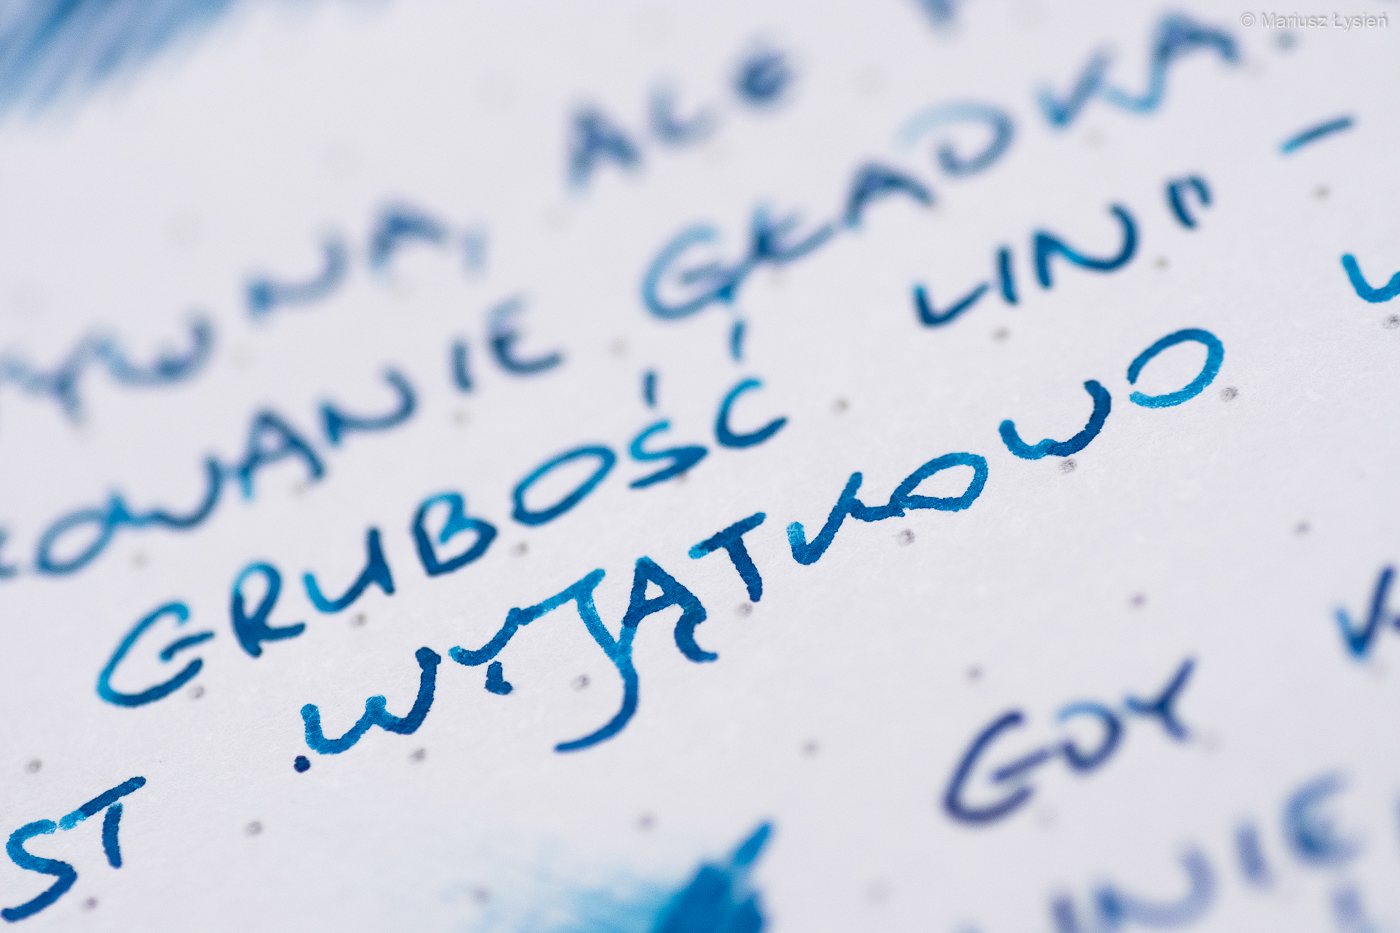 © Mariusz Łysień
YWNA, ALE
KOWANIE GŁADKA.
GRUBOŚĆ LINII –
ST WYJĄTKOWO
GDY K
INIE